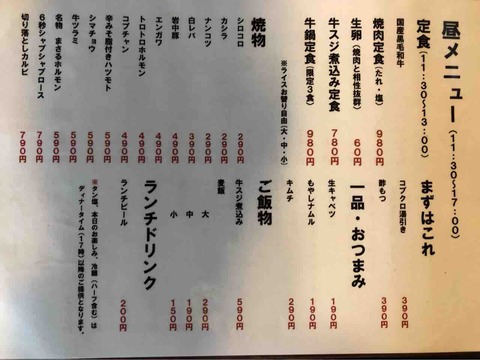 昼メニュー(11:30〜17:00)
定食(11:30〜13:00)
国産黒毛和牛
焼肉定食(たれ・塩) 980円
生卵(焼肉と相性抜群) 60円
牛スジ煮込み定食 780円
牛鍋定食(限定3食) 980円
※ライスお替り自由(大・中・小)
焼物
シロコロ 290円
カシラ 290円
ナンコツ 290円
白レバ 390円
岩中豚 490円
エンガワ 490円
トロトロホルモン 490円
コプチャン 490円
辛みそ脂付きハツモト 590円
シマチョウ 590円
牛ツラミ 590円
名物 まさるホルモン 590円
6秒シャブシャブロース 790円
切り落としカルビ 790円
まずはこれ
コブクロ湯引き 390円
酢もつ 390円
一品・おつまみ
生キャベツ 190円
もやしナムル 190円
キムチ 290円
ご飯物
牛スジ煮込み 590円
麦飯
大 290円
中 190円
小 150円
ランチドリンク
ランチビール 200円
※タン塩、本日のお楽しみ、冷麺(ハーフ含む)は
ディナータイム(17時)以降のご提供となります。